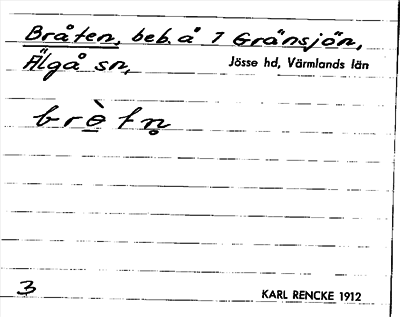 Bråten, beb. å 7 Gränsjön,
Älgå sn, Jösse hd, Värmlands län
brὸ̱tn̥
3 KARL RENCKE 1912